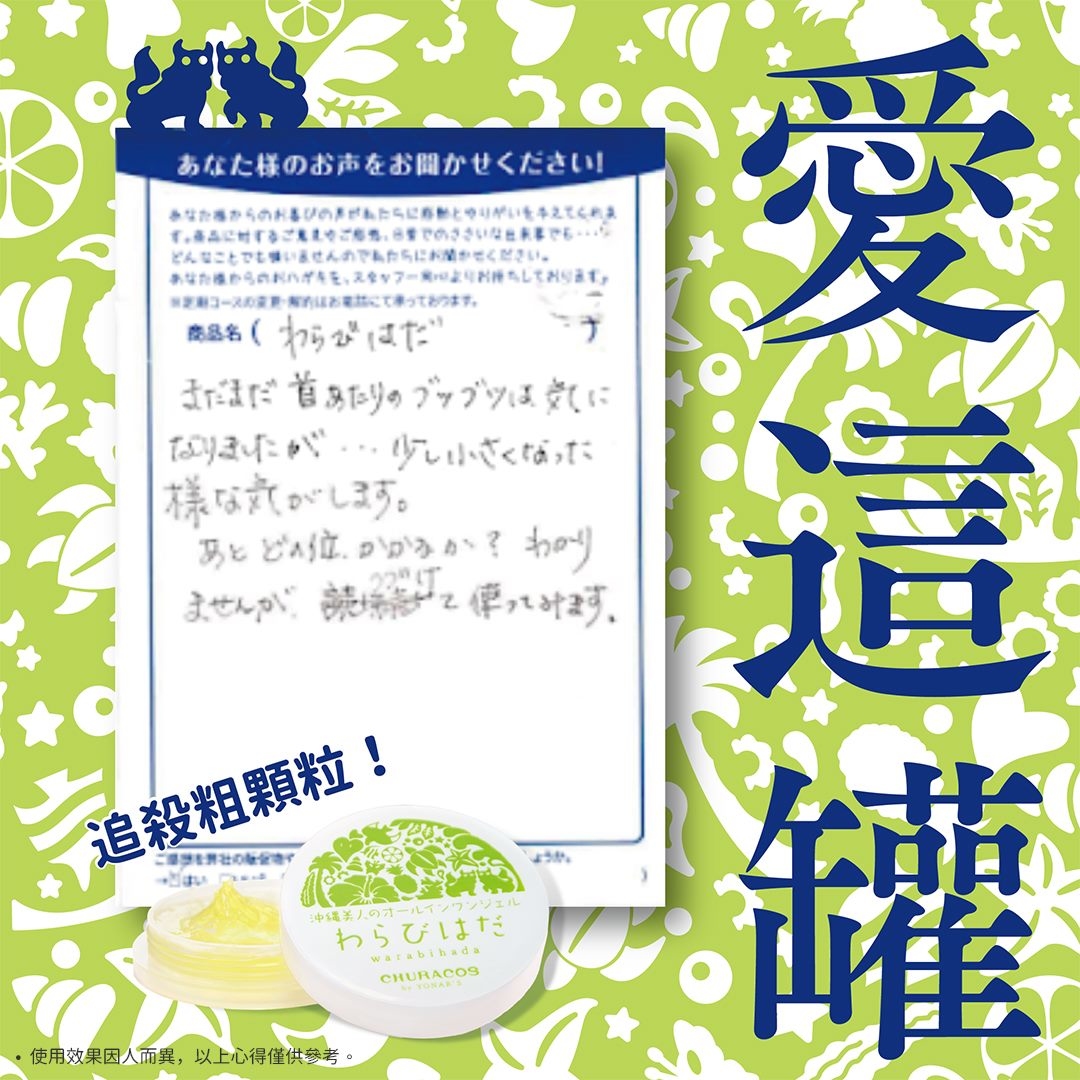 愛這罐
あなた様のお声をお聞かせください!
あなた様からのお喜びの声が私たちに感動とやりがいを与えてくれま
す。商品に対するご意見やご感想、日常でのささいな出来事でも・・・
どんなことでも構いませんので私たちにお聞かせください。
あなた様からのおハガキを、スタッフ一同心よりお待ちしております。
※定期コースの変更・解約はお電話にて承っております。
商品名( わらびはだ )
まだまだ 首あたりのブツブツは気に
なりましたが・・・少し小さくなった
様な気がします。
あと どの位、かかるか? わかり
ませんが、つづけて使ってみます。
追殺粗顆粒!
ご感想を弊社の販促物や
ょうか。
→ はい
沖縄美人のオールインワンジェル
わらびはだ
warabihada
CHURACOS
by YONAR'S
• 使用效果因人而異，以上心得僅供參考。